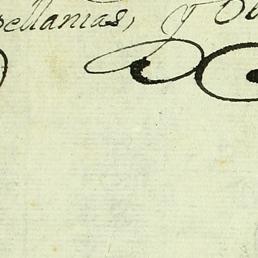 pellanias, y Ob